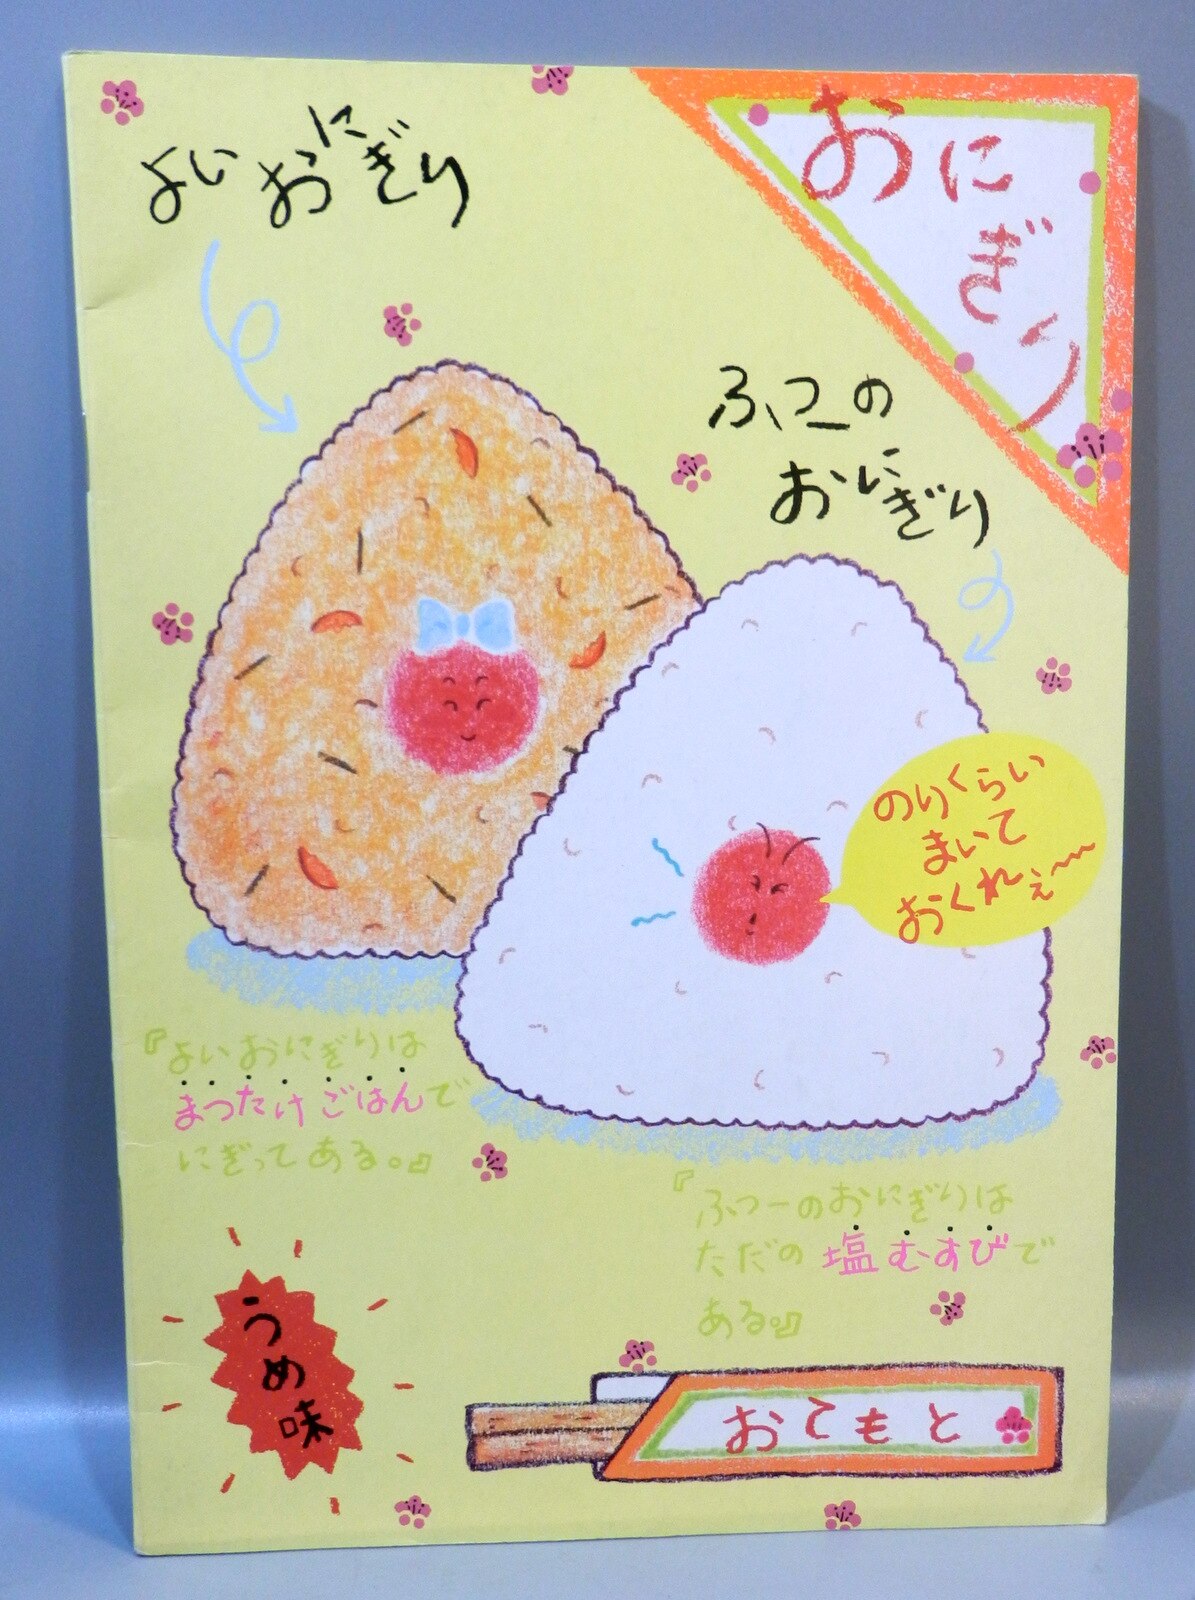 おにぎり
よいおにぎり
ふつーの
おにぎり
のりくらい
まいて
おくれぇ〜
『よいおにぎりは
まつたけごはんで
にぎってある。』
『ふつーのおにぎりは
ただの塩むすびで
ある。』
うめ味
おてもと